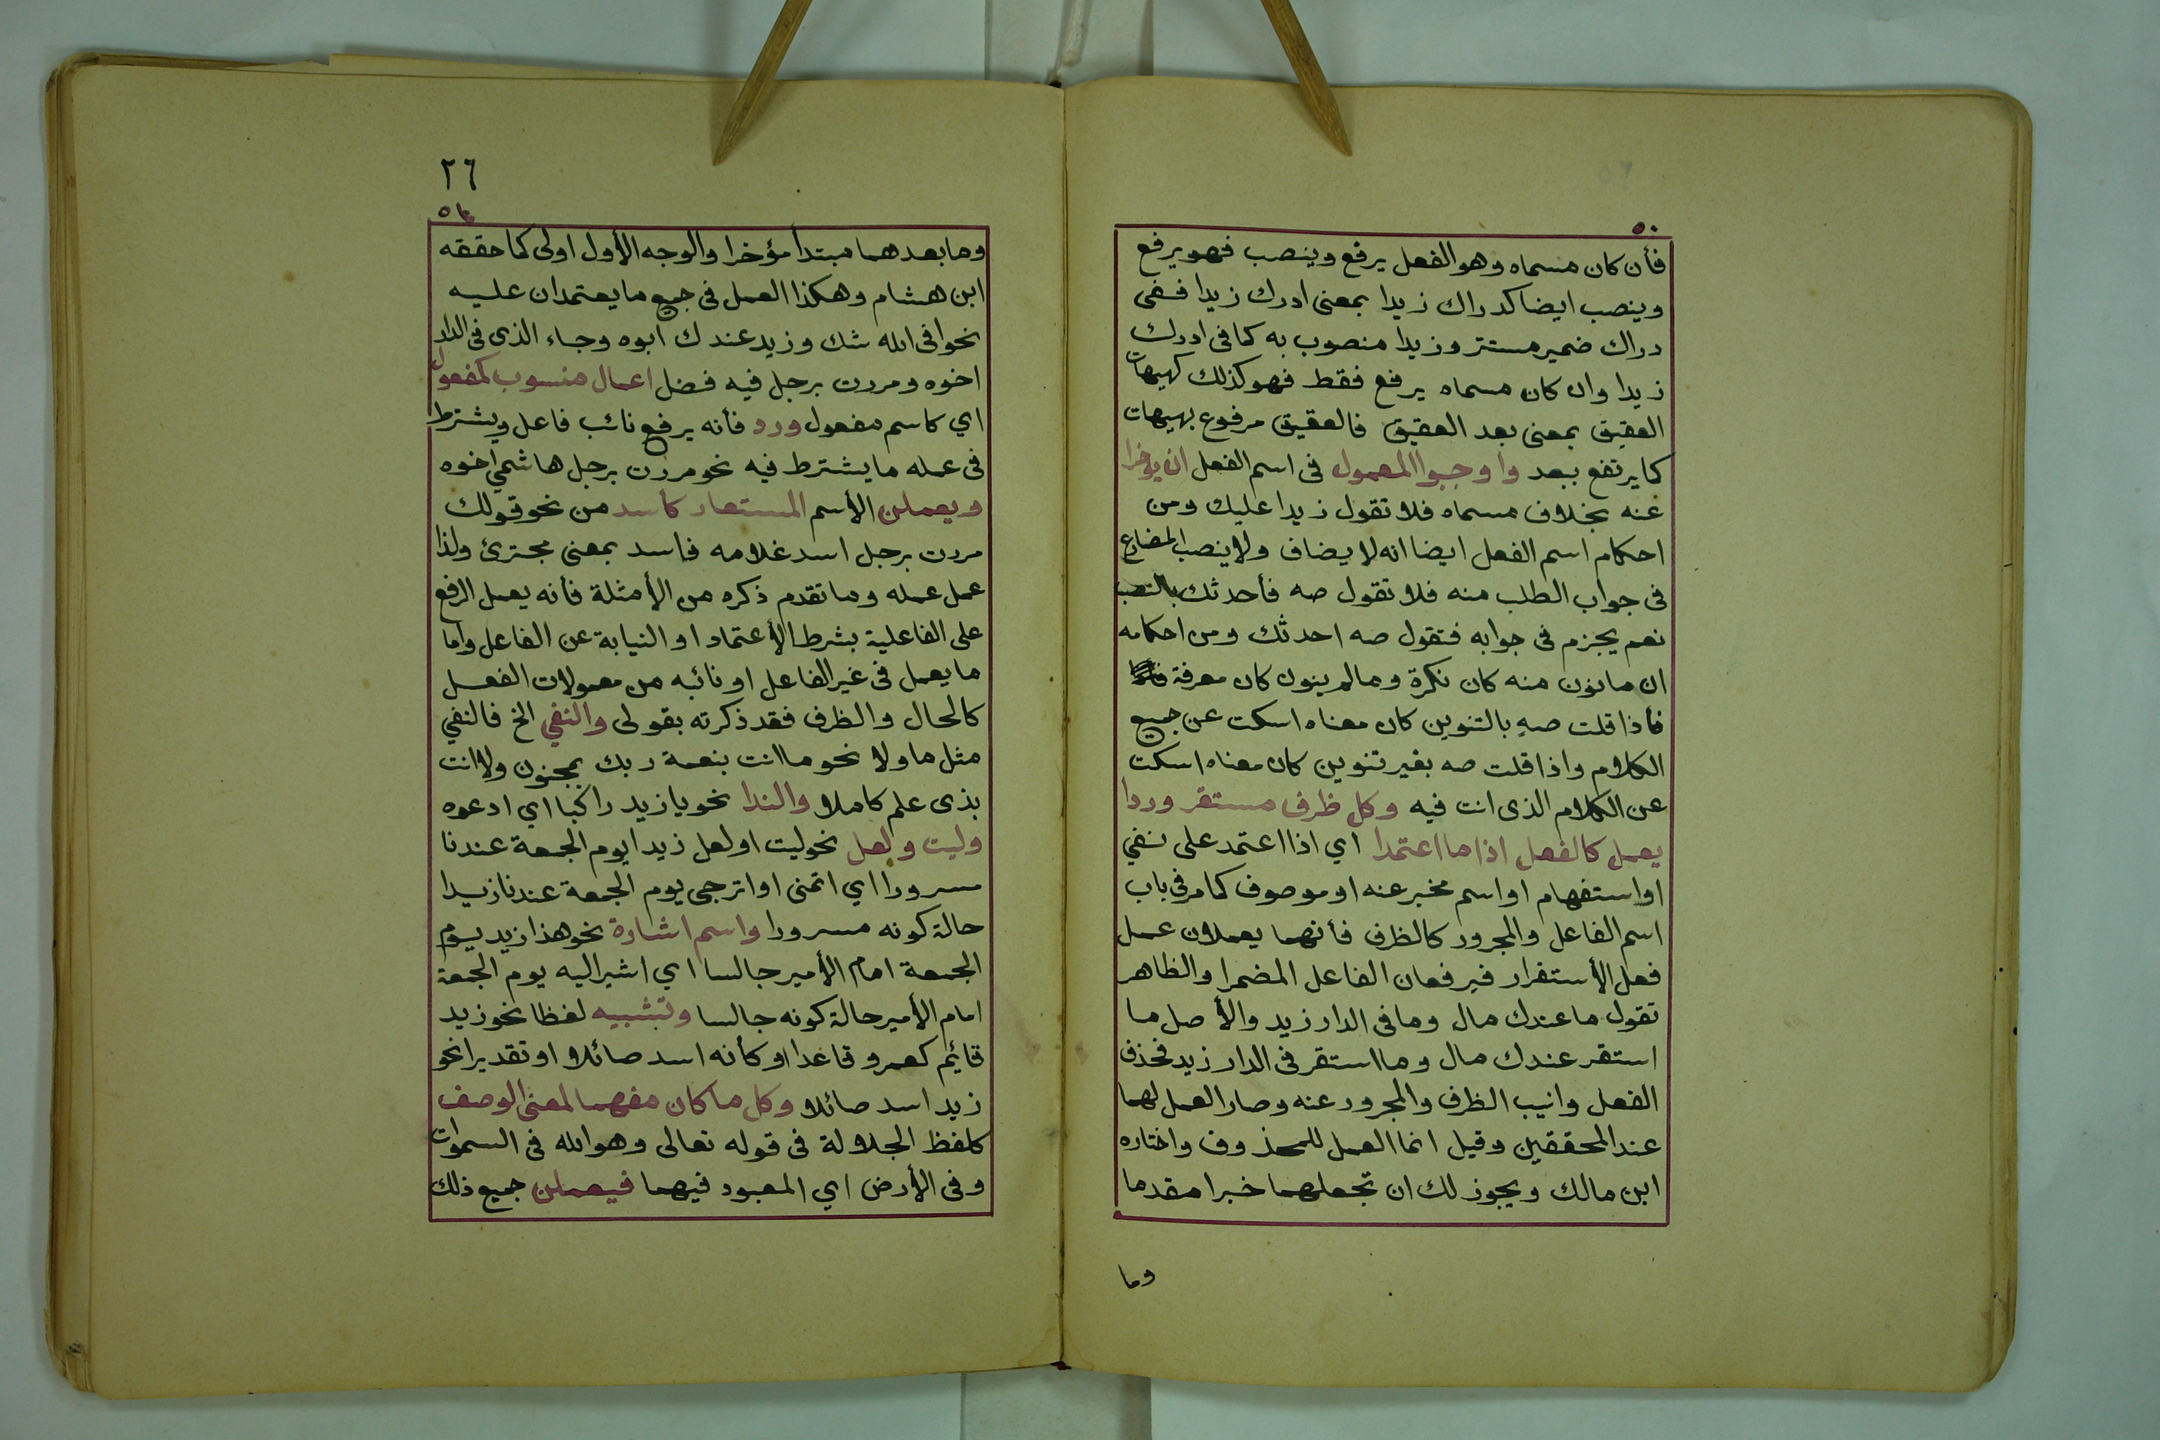 ٥٠
فأن كان مسماه وهو الفعل يرفع وينصب فهو يرفع
وينصب ايضا كدراك زيدا بمعنى ادرك زيدا ففى
دراك ضمير مستتر وزيدا منصوب به كما فى ادرك
زيدا وان كان مسماه يرفع فقط فهو كذلك كهيهات
العقيق بمعنى بعد العقيق فالعقيق مرفوع بهيهات
كما يرتفع ببعد واوجبوا المعمول فى اسم الفعل ان يؤخرا
عنه بخلاف مسماه فلا تقول زيدا عليك ومن
احكام اسم الفعل ايضا انه لا يضاف ولا ينصب المضارع
فى جواب الطلب منه فلا تقول صه فأحدثك بالنصب
نعم يجزم فى جوابه فتقول صه احدثك ومن احكامه
ان ما نون منه كان نكرة وما لم ينون كان معرفة
فأذا قلت صهٍ بالتنوين كان معناه اسكت عن جميع
الكلام واذا قلت صه بغير تنوين كان معناه اسكت
عن الكلام الذى انت فيه وكل ظرف مستقر وردا
يعمل كالفعل اذا ما اعتمدا اي اذا اعتمد على نفي
او استفهام او اسم مخبر عنه او موصوف كما مر فى باب
اسم الفاعل والمجرور كالظرف فأنهما يعملان عمل
فعل الأستقرار فيرفعان الفاعل المضمر او الظاهر
تقول ما عندك مال وما فى الدار زيد والأصل ما
استقر عندك مال وما استقر فى الدار زيد فحذف
الفعل وانيب الظرف والمجرور عنه وصار العمل لهما
عند المحققين وقيل انما العمل للمحذوف واختاره
ابن مالك ويجوز لك ان تجعلهما خبرا مقدما
وما
٢٦
وما بعدهما مبتدأ مؤخرا والوجه الأول اولى كما حققه
ابن هشام وهكذا العمل فى جميع ما يعتمدان عليه
نحو افى الله شك وزيد عندك ابوه وجاء الذى فى الدار
اخوه ومررت برجل فيه فضل اعمال منسوب كمفعول
اي كاسم مفعول ورد فأنه يرفع نائب فاعل ويشترط
فى عمله ما يشترط فيه نحو مررت برجل هاشمي اخوه
ويعملن الأسم المستعار كأسد من نحو قولك
مررت برجل اسد غلامه فاسد بمعنى مجترئ ولذا
عمل عمله وما تقدم ذكره من الأمثلة فأنه يعمل الرفع
على الفاعلية بشرط الأعتماد او النيابة عن الفاعل واما
ما يعمل فى غير الفاعل او نائبه من معمولات الفعل
كالحال والظرف فقد ذكرته بقولى والنفي الخ فالنفي
مثل ما ولا نحو ما انت بنعمة ربك بمجنون ولا انت
بذى علم كاملا والندا نحو يا زيد راكبا اي ادعوه
وليت ولعل نحو ليت او لعل زيدا يوم الجمعة عندنا
مسرورا اي اتمنى او اترجى يوم الجمعة عندنا زيدا
حالة كونه مسرورا واسم اشارة نحو هذا زيد يوم
الجمعة امام الأمير جالسا اي اشير اليه يوم الجمعة
امام الأمير حالة كونه جالسا وتشبيه لفظا نحو زيد
قائيم كعمرو قاعدا او كأنه اسد صائلا او تقديرا نحو
زيد اسد صائلا وكل ما كان مفهما لمعنى الوصف
كلفظ الجلالة فى قوله تعالى وهو الله فى السموات
وفى الأرض اي المعبود فيهما فيعملن جميع ذلك